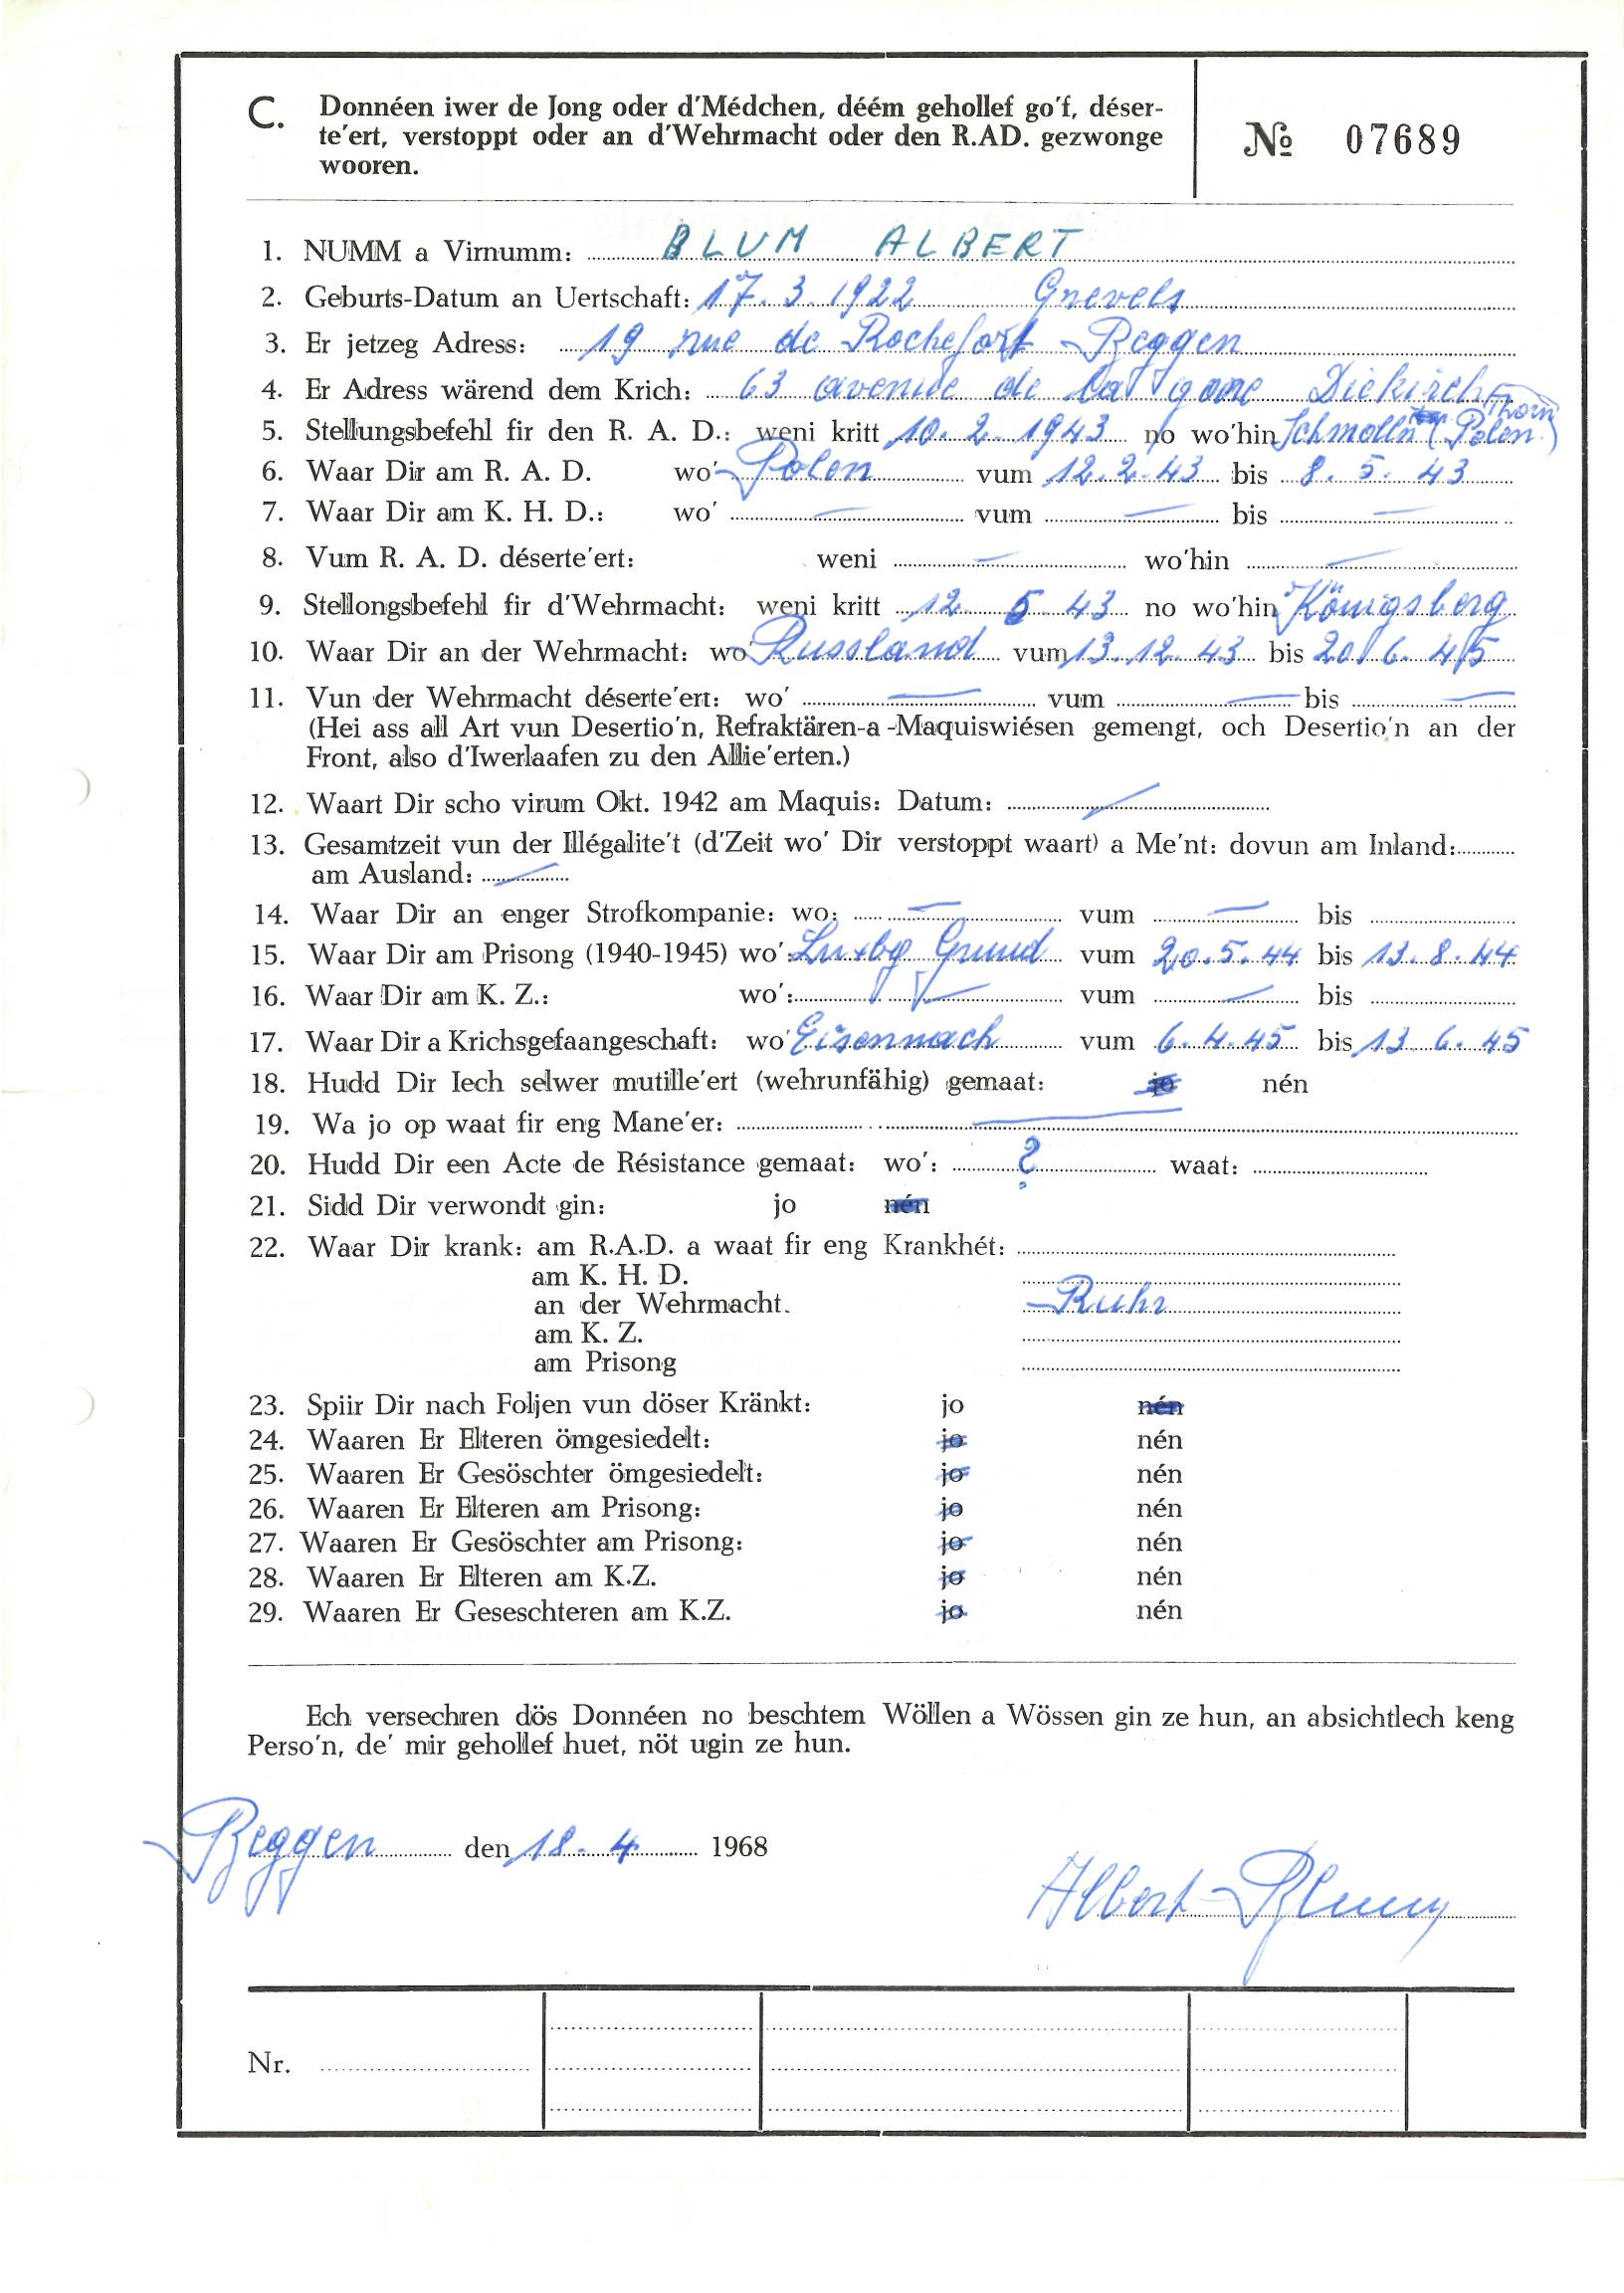 C. Donnéen iwer de Jong oder d'Médchen, déém gehollef go'f, déser-
te'ert, verstoppt oder an d'Wehrmacht oder den R.AD. gezwonge
wooren.
№ 07689
1. NUMM a Virnumm: BLUM ALBERT
2. Geburts-Datum an Uertschaft: 17.3.1922 Grevels
3. Er jetzeg Adress: 19 rue de Rochefort Beggen
4. Er Adress wärend dem Krich: 63 avenue de la gare Diekirch
5. Stellungsbefehl fir den R. A. D.: weni kritt 10.2.1943 no wo'hin Schmolln (Thorn Polen)
6. Waar Dir am R. A. D. wo' Polen vum 12.2.43 bis 8.5.43
7. Waar Dir am K. H. D.: wo' — vum — bis —
8. Vum R. A. D. déserte'ert: weni — wo'hin —
9. Stellongsbefehl fir d'Wehrmacht: weni kritt 12. 5 43 no wo'hin Königsberg
10. Waar Dir an der Wehrmacht: wo' Russland vum 13.12.43 bis 20.6.45
11. Vun der Wehrmacht déserte'ert: wo' — vum — bis —
(Hei ass all Art vun Desertio'n, Refraktären-a-Maquiswiésen gemengt, och Desertio'n an der
Front, also d'Iwerlaafen zu den Allie'erten.)
12. Waart Dir scho virum Okt. 1942 am Maquis: Datum: —
13. Gesamtzeit vun der Illégalite't (d'Zeit wo' Dir verstoppt waart) a Me'nt: dovun am Inland:
am Ausland: —
14. Waar Dir an enger Strofkompanie: wo: — vum — bis
15. Waar Dir am Prisong (1940-1945) wo': Luxbg Grund vum 20.5.44 bis 13.8.44
16. Waar Dir am K. Z.: wo': — vum — bis
17. Waar Dir a Krichsgefaangeschaft: wo' Eisennach vum 6.4.45 bis 13.6.45
18. Hudd Dir Iech selwer mutille'ert (wehrunfähig) gemaat: jo nén
19. Wa jo op waat fir eng Mane'er: —
20. Hudd Dir een Acte de Résistance gemaat: wo': ? waat:
21. Sidd Dir verwondt gin: jo nén
22. Waar Dir krank: am R.A.D. a waat fir eng Krankhét:
am K. H. D.
an der Wehrmacht. Ruhr
am K. Z.
am Prisong
23. Spiir Dir nach Foljen vun döser Kränkt: jo nén
24. Waaren Er Elteren ömgesiedelt: jo nén
25. Waaren Er Gesöschter ömgesiedelt: jo nén
26. Waaren Er Elteren am Prisong: jo nén
27. Waaren Er Gesöschter am Prisong: jo nén
28. Waaren Er Elteren am K.Z. jo nén
29. Waaren Er Geseschteren am K.Z. jo nén
Ech versechren dös Donnéen no beschtem Wöllen a Wössen gin ze hun, an absichtlech keng
Perso'n, de' mir gehollef huet, nöt ugin ze hun.
Beggen den 18. 4. 1968
Albert Blum
Nr.